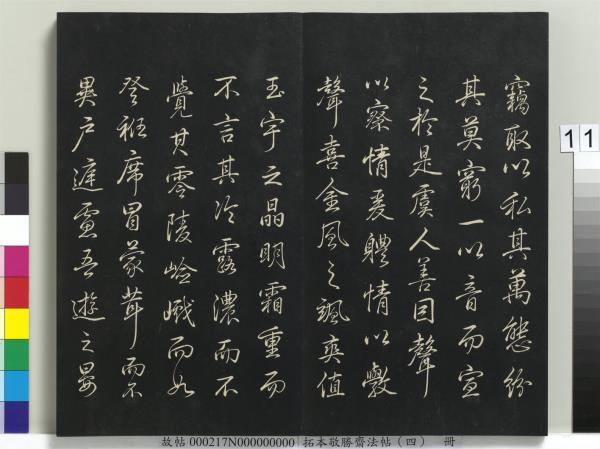 竊取以私其萬態紛
其莫窮一以音而宣
之於是虞人善因聲
以察情爰體情以斅
聲喜金風之颯爽值
玉宇之晶明霜重而
不言其冷露濃而不
覺其零陵崄峨而如
登衽席冒蒙茸而不
異戶庭畫吾遊之晏
11
故帖 000217N000000000 拓本敬勝齋法帖(四) 冊